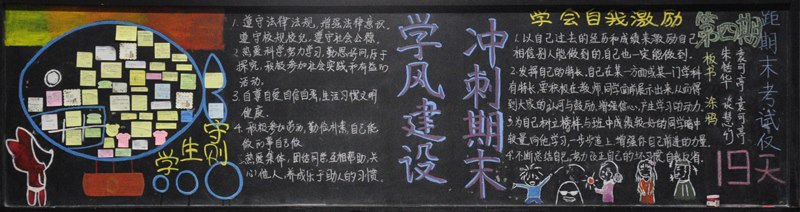 学生守则
1.遵守法律法规,增强法律意识。
遵守校规校纪,遵守社会公德。
2.热爱科学努力学习,勤思好问,乐于
探究,积极参加社会实践和有益的
活动。
3.自尊自爱,自信自强,生活习惯文明
健康。
4.积极参加劳动,勤俭朴素,自己能
做的事自己做。
5.热爱集体,团结同学,互相帮助,关
心他人,养成乐于助人的习惯。
学风建设
冲刺期末
学会自我激励
1.以自己过去的经历和成绩来激励自己
相信别人能做到的自己也一定能做到。
2.发挥自己的特长,自己在某一方面或某一门学科
有特长,要积极在教师、同学面前展示出来,从而得
到大家的认可与鼓励,增强信心,产生学习的动力。
3.为自己树立榜样,与班中成绩较好的同学暗中
较量,向他学习,一步步追上,增强你自己前进的力量。
4.不断总结自己,努力改正自己的坏习惯
第四期
板书
涂鸦
距期末考试仅
19天